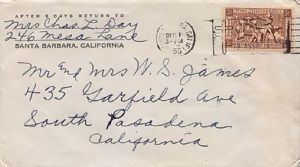 AFTER 5 DAYS RETURN TO
Mrs Chas. L. Day
246 Mesa Lane
SANTA BARBARA, CALIFORNIA
DEC
Mr and Mrs W. S. James
435 Garfield Ave
South Pasadena
California